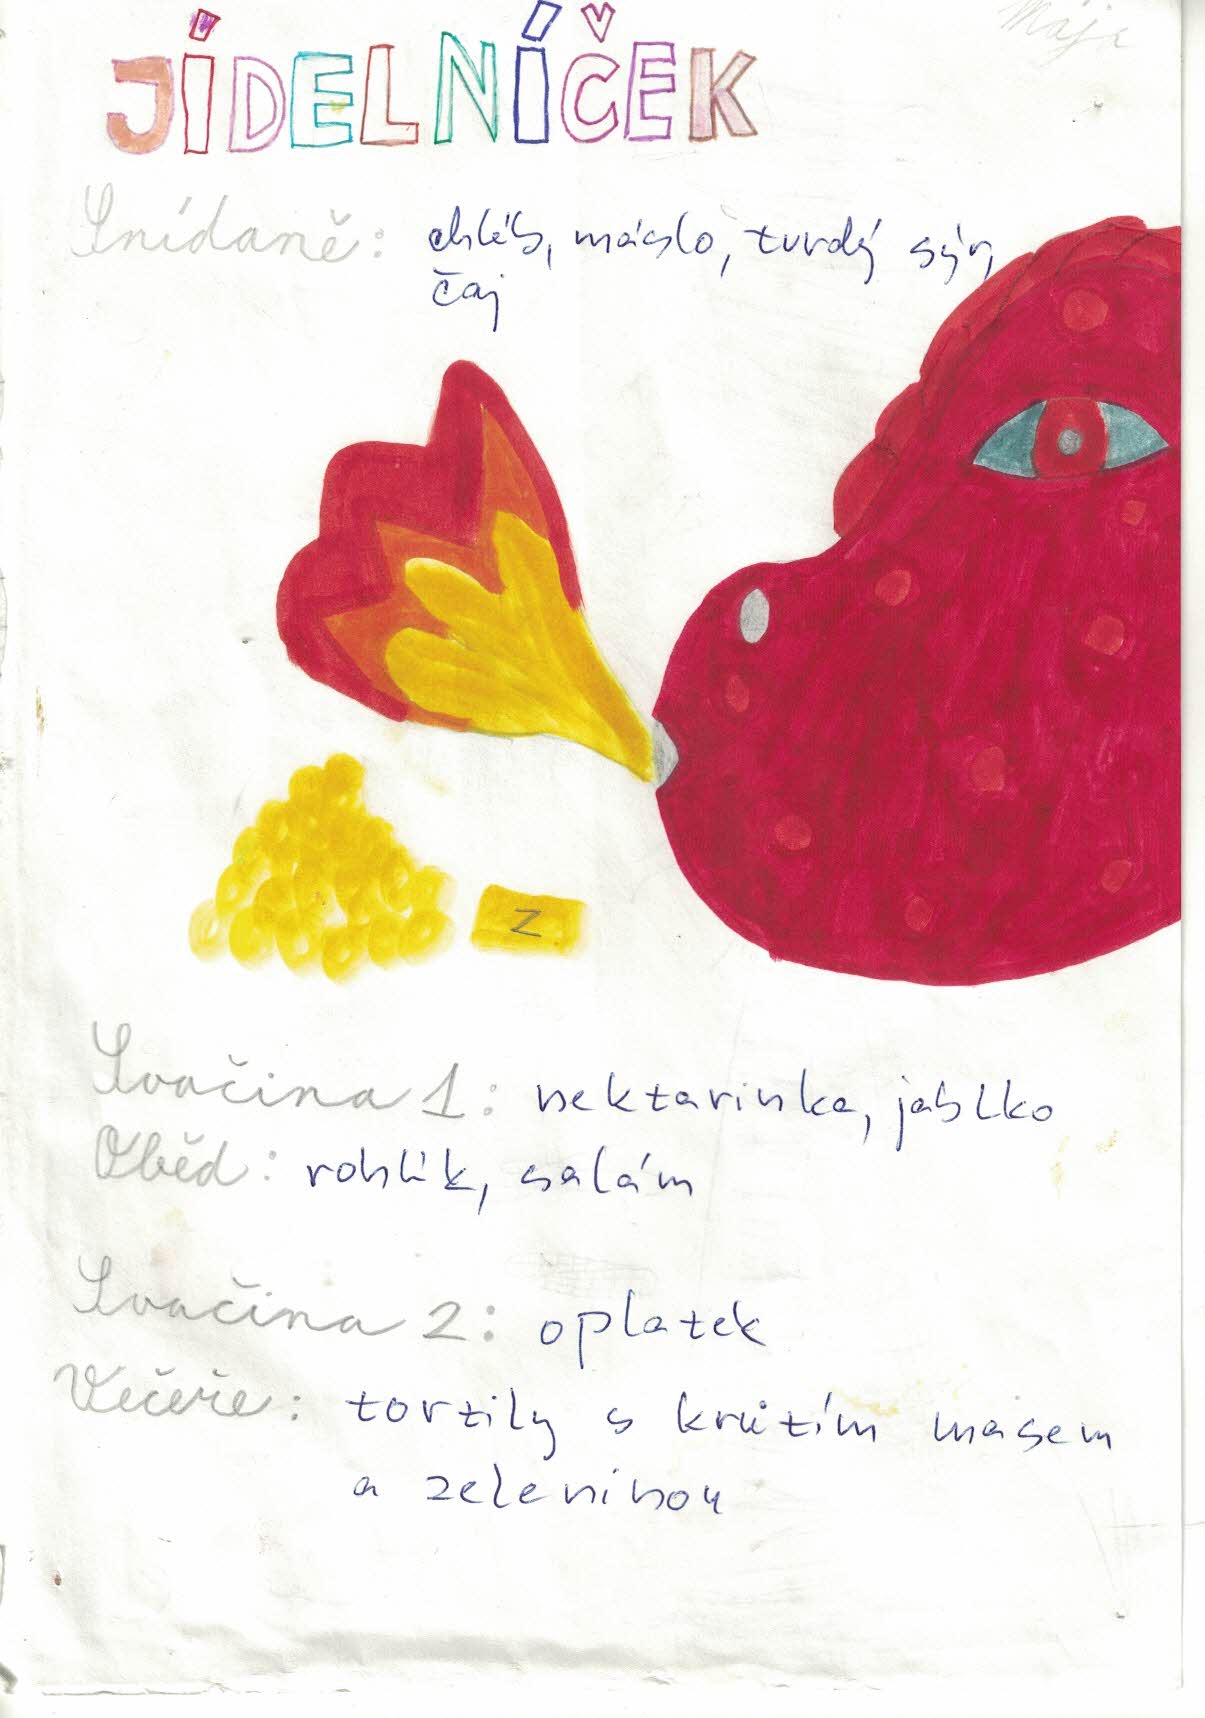 Mája
JÍDELNÍČEK
Snídaně: chléb, máslo, tvrdý sýr,
čaj
Z
Svačina 1: nektarinka, jablko
Oběd: rohlík, salám
Svačina 2: oplatek
Večeře: tortily s krůtím masem
a zeleninou